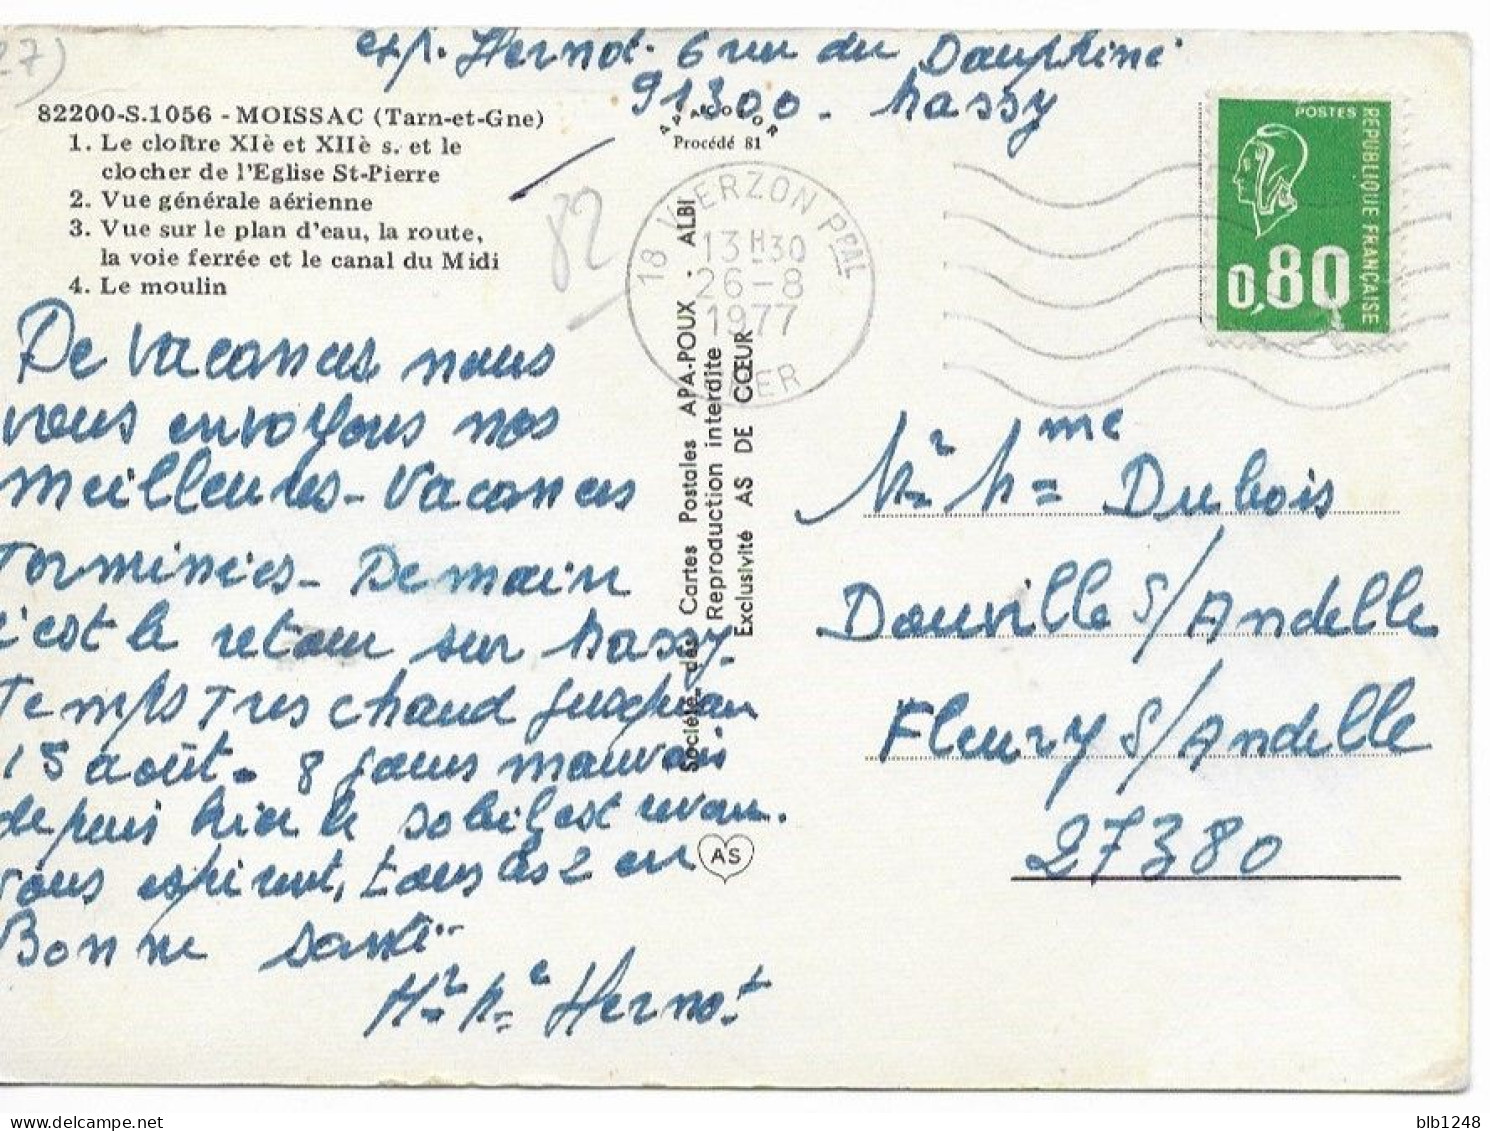 27)
exp. Hernot. 6 rue du Dauphiné
91300. Massy
82200-S.1056 - MOISSAC (Tarn-et-Gne)
1. Le cloître XIè et XIIè s. et le
clocher de l'Eglise St-Pierre
2. Vue générale aérienne
3. Vue sur le plan d'eau, la route,
la voie ferrée et le canal du Midi
4. Le moulin
Procédé 81
82
18 VIERZON Pcal
13H30
26-8
1977
CHER
POSTES
REPUBLIQUE FRANÇAISE
0,80
De Vacances nous
vous envoyons nos
meilleures - Vacances
Terminées - Demain
c'est le retour sur Massy
Temps Tres chaud jusqu'au
15 août. 8 jours mauvais
depuis hier le soleil est revenu.
vous espérent, tous les 2 en
Bonne santé..
Mr Me Hernot
Société des Cartes Postales APA-POUX . ALBI
Reproduction interdite
Exclusivité AS DE CŒUR
AS
Mr Mme Dubois
Douville s/Andelle
Fleury s/Andelle
27380
blb1248